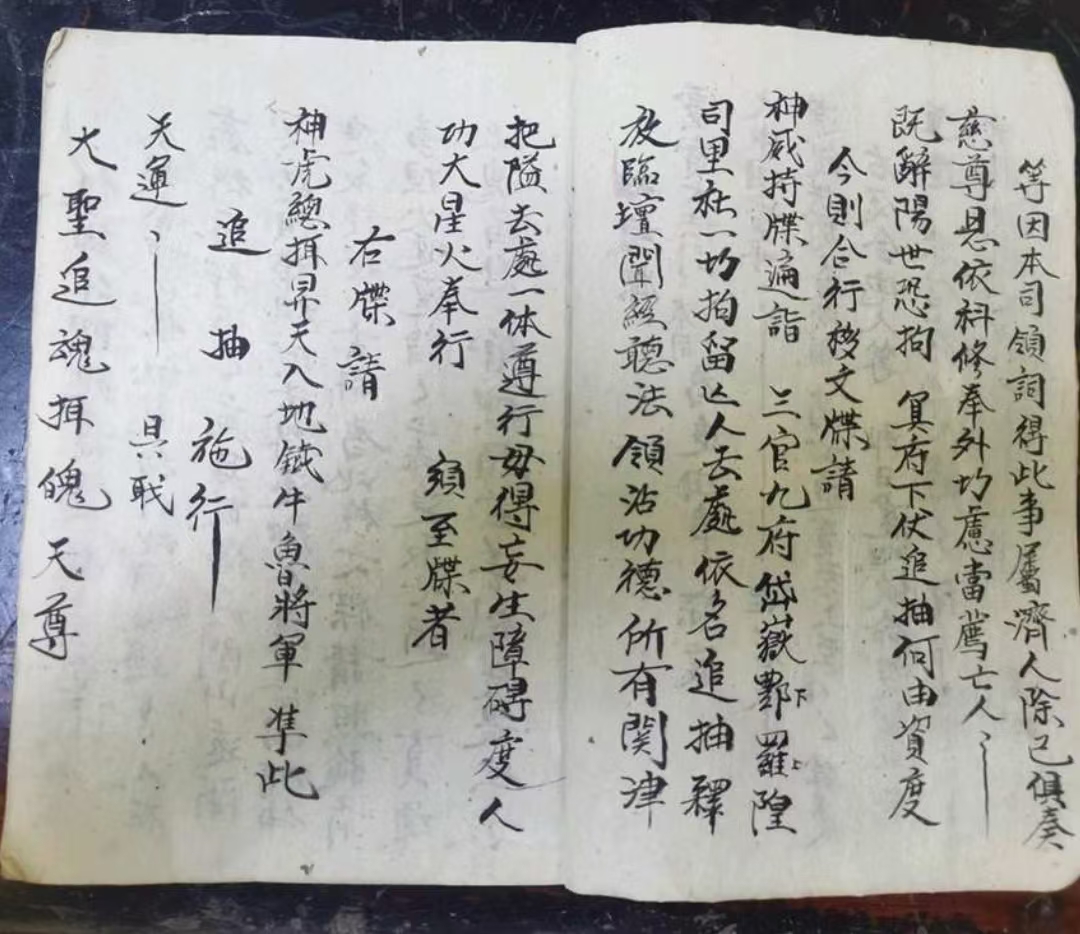 等因本司領詞得此事屬濟人除已俱奏
慈尊恩依科修奉外切慮當薦亡人
既辭陽世恐拘 冥府下伏追抽何由資度
今則合行移文牒請
神威持牒遍詣 三官九府岱嶽酆下羅隍
司里社一切拍留亾人去處依名追抽釋
放臨壇聞經聽法領沾功德所有関津
把隘去處一体遵行毋得妄生障碍度人
功大星火奉行 須至牒者
右牒請
神虎總捉昇天入地鉄牛魯將軍 準此
追抽施行
天運 具职
大聖追魂捉魄天尊